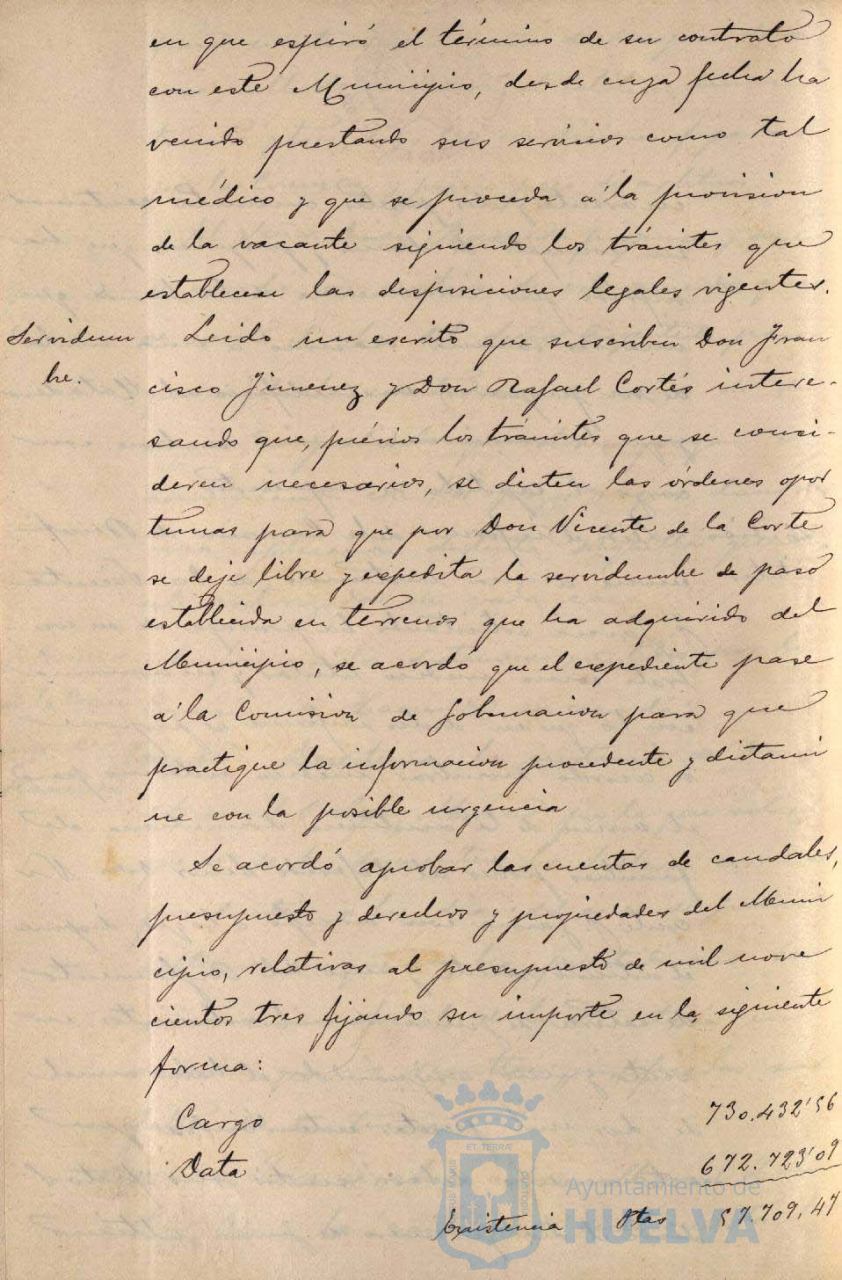 en que espiró el término de su contrato
con este Municipio, desde cuya fecha ha
venido prestando sus servicios como tal
médico y que se proceda á la provision
de la vacante siguiendo los trámites que
establecen las disposiciones legales vigentes.
Servidum
bre.
Leido un escrito que suscriben Don Fran
cisco Jimenez y Don Rafael Cortés intere-
sando que, prévios los trámites que se consi-
deren necesarios, se dicten las órdenes opor
tunas para que por Don Vicente de la Corte
se deje libre y expedita la servidumbre de paso
establecida en terrenos que ha adquirido del
Municipio, se acordó que el expediente pase
á la Comision de Gobernacion para que
practique la informacion procedente y dictami
ne con la posible urgencia
Se acordó aprobar las cuentas de caudales,
presupuesto y derechos y propiedades del Muni
cipio, relativas al presupuesto de mil nove
cientos tres fijando su importe en la siguiente
forma:
Cargo 730.432'56
Data 672.723'09
Existencia Ptas 57.709,47
ET TERRÆ
Ayuntamiento de
HUELVA